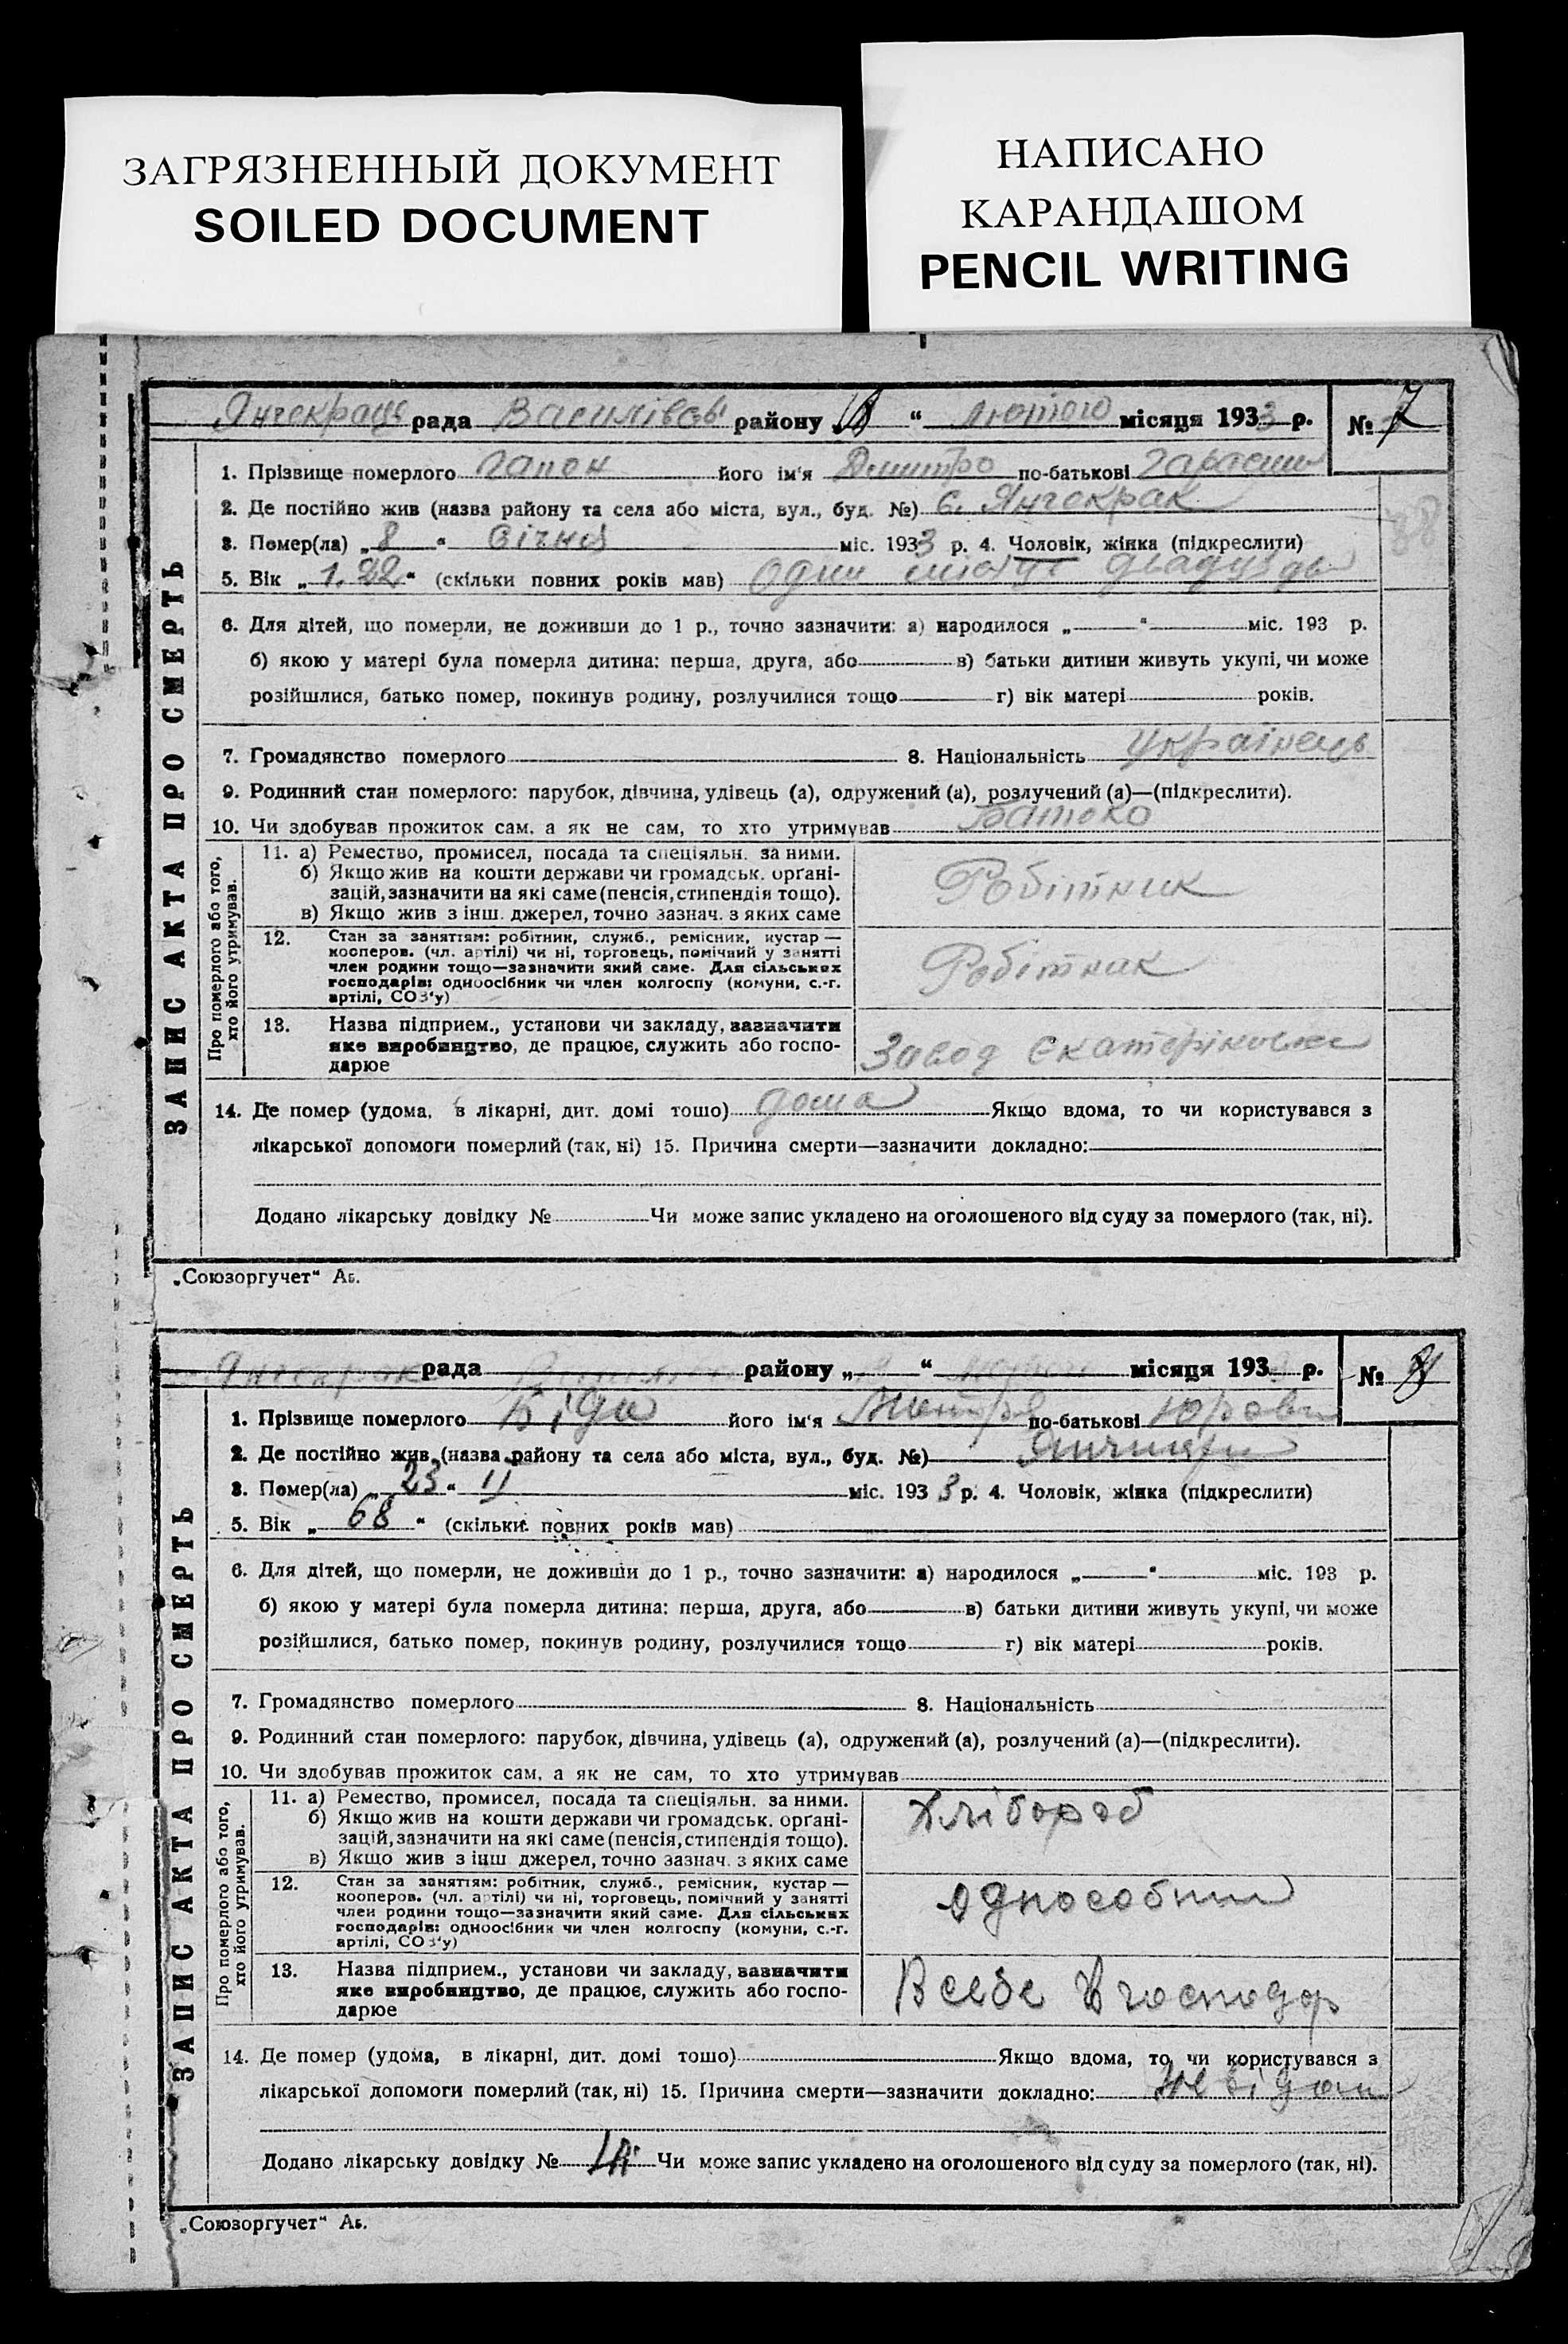 ЗАГРЯЗНЕННЫЙ ДОКУМЕНТ
SOILED DOCUMENT
НАПИСАНО
КАРАНДАШОМ
PENCIL WRITING
Янчекраць рада Василівські району „ “ лютого місяця 1933 р. № 7
ЗАПИС АКТА ПРО СМЕРТЬ
1. Прізвище померлого Гапон його ім'я Дмитро по-батькові
2. Де постійно жив (назва району та села або міста, вул., буд. №) с. Янчекрак
3. Помер(ла) „ 8 “ Січня міс. 1933 р. 4. Чоловік, жінка (підкреслити)
5. Вік „ 1.22 “ (скільки повних років мав) Один місяць двадцядь
6. Для дітей, що померли, не доживши до 1 р., точно зазначити: а) народилося „ “ міс. 193 р.
б) якою у матері була померла дитина: перша, друга, або в) батьки дитини живуть укупі, чи може
розійшлися, батько помер, покинув родину, розлучилися тощо г) вік матері років.
7. Громадянство померлого 8. Національність Українець
9. Родинний стан померлого: парубок, дівчина, удівець (а), одружений (а), розлучений (а)—(підкреслити).
10. Чи здобував прожиток сам, а як не сам, то хто утримував Батоко
Про померлого або того, хто його утримував.
11. а) Ремество, промисел, посада та спеціяльн. за ними.
б) Якщо жив на кошти держави чи громадськ. орґані-
зацій, зазначити на які саме (пенсія, стипендія тощо).
в) Якщо жив з інш. джерел, точно зазнач. з яких саме
Робітник
12. Стан за заняттям: робітник, служб., ремісник, кустар —
кооперов. (чл. артілі) чи ні, торговець, помічний у занятті
член родини тощо—зазначити який саме. Для сільських
господарів: одноосібник чи член колгоспу (комуни, с.-г.
артілі, СОЗ'у)
Робітник
13. Назва підприєм., установи чи закладу, зазначити
яке виробництво, де працює, служить або госпо-
дарює
Завод
14. Де помер (удома, в лікарні, дит. домі тошо) дома Якщо вдома, то чи користувався з
лікарської допомоги померлий (так, ні) 15. Причина смерти—зазначити докладно:
Додано лікарську довідку № Чи може запис укладено на оголошеного від суду за померлого (так, ні).
„Союзоргучет“ Аб.
Янчекрак рада району „ “ місяця 193 р. № 8
ЗАПИС АКТА ПРО СМЕРТЬ
1. Прізвище померлого Біда його ім'я по-батькові
2. Де постійно жив (назва району та села або міста, вул., буд. №)
3. Помер(ла) „ 23 “ II міс. 1933 р. 4. Чоловік, жінка (підкреслити)
5. Вік „ 68 “ (скільки повних років мав)
6. Для дітей, що померли, не доживши до 1 р., точно зазначити: а) народилося „ “ міс. 193 р.
б) якою у матері була померла дитина: перша, друга, або в) батьки дитини живуть укупі, чи може
розійшлися, батько помер, покинув родину, розлучилися тощо г) вік матері років.
7. Громадянство померлого 8. Національність
9. Родинний стан померлого: парубок, дівчина, удівець (а), одружений (а), розлучений (а)—(підкреслити).
10. Чи здобував прожиток сам, а як не сам, то хто утримував
Про померлого або того, хто його утримував.
11. а) Ремество, промисел, посада та спеціяльн. за ними.
б) Якщо жив на кошти держави чи громадськ. орґані-
зацій, зазначити на які саме (пенсія, стипендія тощо).
в) Якщо жив з інш джерел, точно зазнач. з яких саме
Хлібороб
12. Стан за заняттям: робітник, служб., ремісник, кустар —
кооперов. (чл. артілі) чи ні, торговець, помічний у занятті
член родини тощо—зазначити який саме. Для сільських
господарів: одноосібник чи член колгоспу (комуни, с.-г.
артілі, СОЗ'у)
13. Назва підприєм., установи чи закладу, зазначити
яке виробництво, де працює, служить або госпо-
дарює
В себе в господар
14. Де помер (удома, в лікарні, дит. домі тошо) Якщо вдома, то чи користувався з
лікарської допомоги померлий (так, ні) 15. Причина смерти—зазначити докладно:
Додано лікарську довідку № Чи може запис укладено на оголошеного від суду за померлого (так, ні).
„Союзоргучет“ Аб.